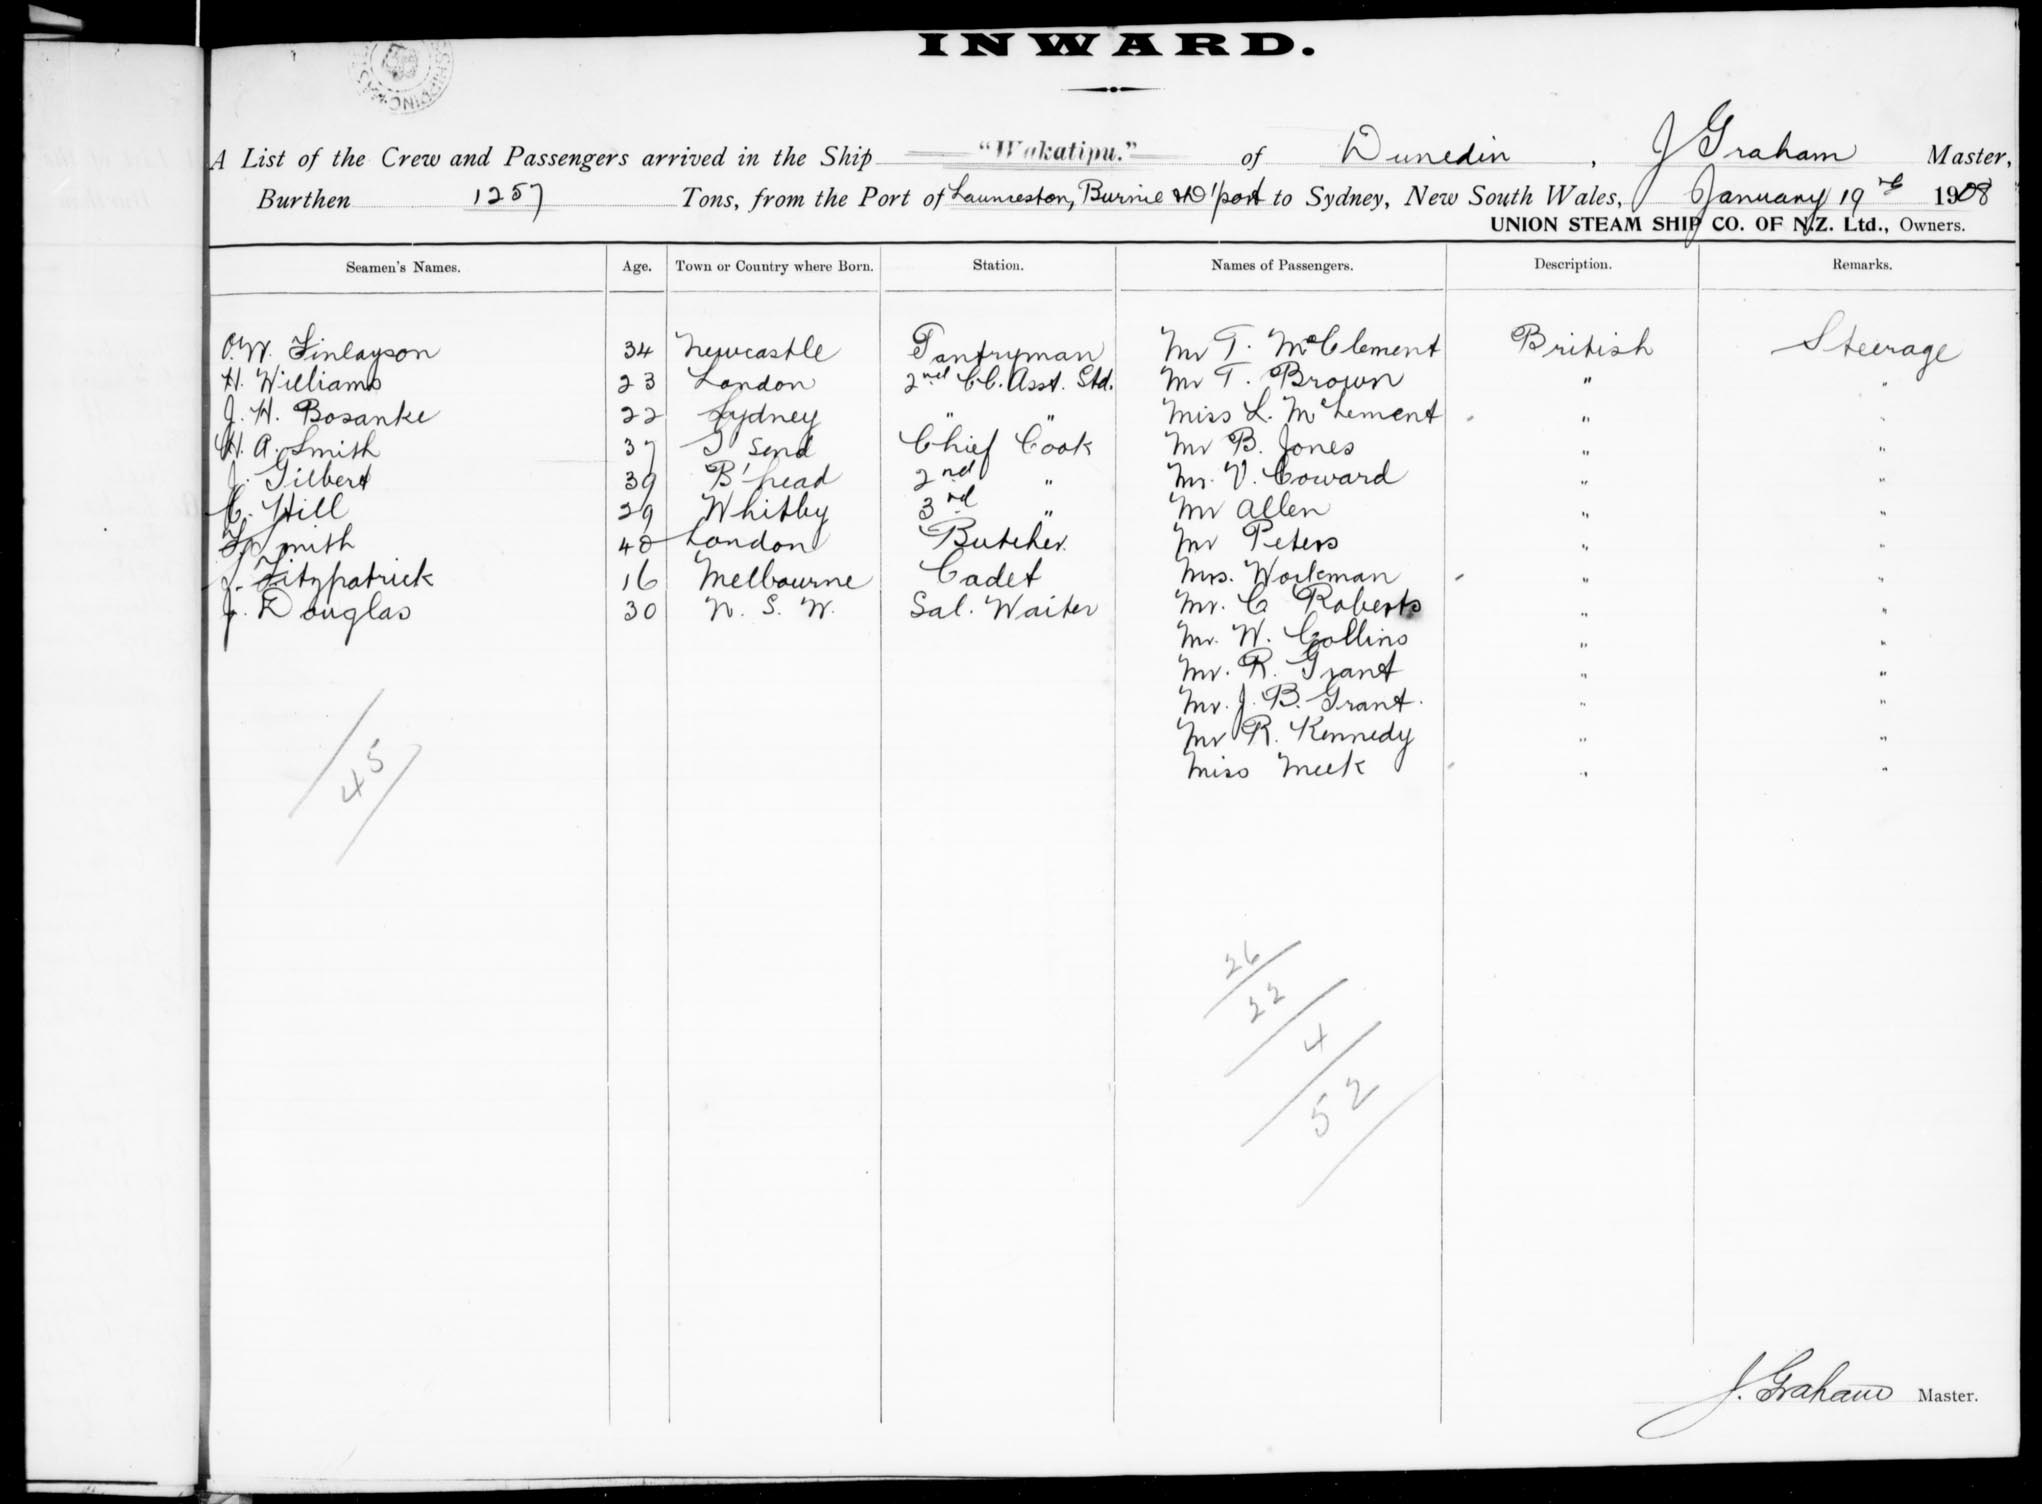 INWARD.
A List of the Crew and Passengers arrived in the Ship "Wakatipu." of Dunedin, J Graham Master,
Burthen 1257 Tons, from the Port of Launceston, Burnie & D'port to Sydney, New South Wales, January 19th 1908
UNION STEAM SHIP CO. OF N.Z. Ltd., Owners.
Seamen's Names. Age. Town or Country where Born. Station. Names of Passengers. Description. Remarks.
W. Finlayson 34 Newcastle Pantryman Mr T. McClement British Steerage
H. Williams 23 London 2nd CC. Asst. Std. Mr T. Brown " "
J. H. Bosanke 22 Sydney " " Miss L. McLement "
H. A. Smith 37 G'send Chief Cook Mr B. Jones " "
J. Gilbert 39 B'head 2nd " Mr. V. Coward " "
C. Hill 29 Whitby 3rd " Mr Allen " "
Smith 40 London Butcher. Mr Peters " "
J. Fitzpatrick 16 Melbourne Cadet Mrs. Workman " "
J. Douglas 30 N. S. W. Sal. Waiter Mr. C Roberts " "
Mr. W. Collins " "
Mr. R. Grant " "
Mr. J. B. Grant. " "
Mr R. Kennedy " "
Miss Meek " "
45
26
22
4
52
J. Graham Master.